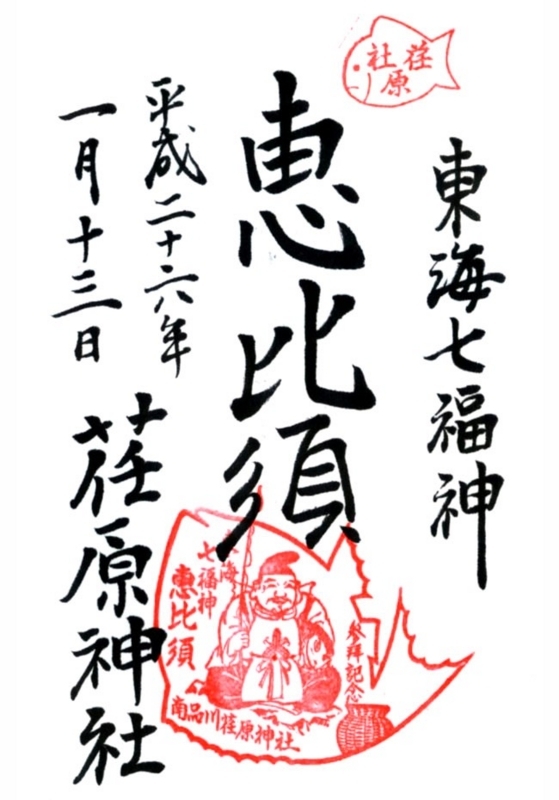 荏原
社
東海七福神
恵比須
平成二十六年
一月十三日
荏原神社
東海
七福神
恵比須
参拝記念
南品川荏原神社